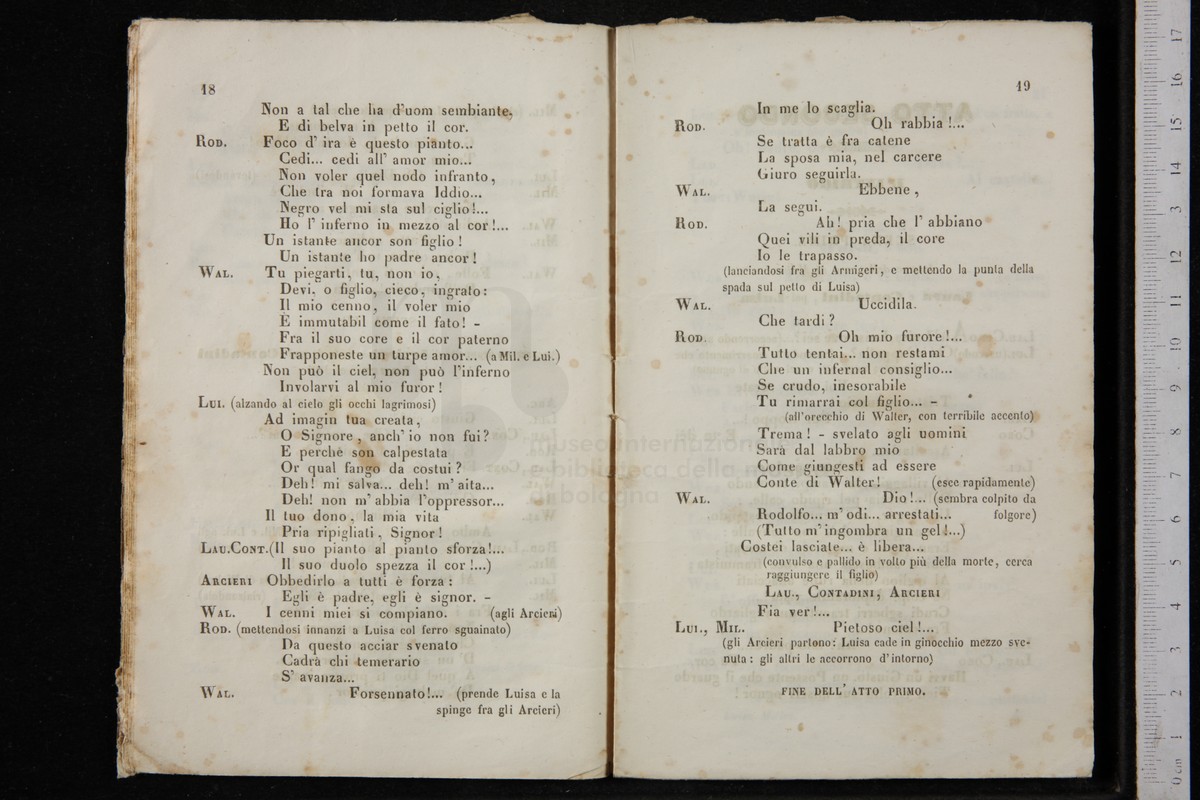 18
Non a tal che ha d'uom sembiante,
E di belva in petto il cor.
ROD. Foco d' ira è questo pianto...
Cedi... cedi all' amor mio...
Non voler quel nodo infranto,
Che tra noi formava Iddio...
Negro vel mi sta sul ciglio!...
Ho l' inferno in mezzo al cor!...
Un istante ancor son figlio!
Un istante ho padre ancor!
WAL. Tu piegarti, tu, non io,
Devi, o figlio, cieco, ingrato:
Il mio cenno, il voler mio
È immutabil come il fato! -
Fra il suo core e il cor paterno
Frapponeste un turpe amor... (a Mil. e Lui.)
Non può il ciel, non può l'inferno
Involarvi al mio furor!
LUI. (alzando al cielo gli occhi lagrimosi)
Ad imagin tua creata,
O Signore, anch' io non fui?
E perchè son calpestata
Or qual fango da costui?
Deh! mi salva... deh! m' aita...
Deh! non m' abbia l'oppressor...
Il tuo dono, la mia vita
Pria ripigliati, Signor!
LAU.CONT.(Il suo pianto al pianto sforza!...
Il suo duolo spezza il cor!...)
ARCIERI Obbedirlo a tutti è forza:
Egli è padre, egli è signor. -
WAL. I cenni miei si compiano. (agli Arcieri)
ROD. (mettendosi innanzi a Luisa col ferro sguainato)
Da questo acciar svenato
Cadrà chi temerario
S' avanza...
WAL. Forsennato!... (prende Luisa e la
spinge fra gli Arcieri)
19
In me lo scaglia.
ROD. Oh rabbia!...
Se tratta è fra catene
La sposa mia, nel carcere
Giuro seguirla.
WAL. Ebbene,
La segui.
ROD. Ah! pria che l' abbiano
Quei vili in preda, il core
Io le trapasso.
(lanciandosi fra gli Armigeri, e mettendo la punta della
spada sul petto di Luisa)
WAL. Uccidila.
Che tardi?
ROD. Oh mio furore!...
Tutto tentai... non restami
Che un infernal consiglio...
Se crudo, inesorabile
Tu rimarrai col figlio... -
(all'orecchio di Walter, con terribile accento)
Trema! - svelato agli uomini
Sarà dal labbro mio
Come giungesti ad essere
Conte di Walter! (esce rapidamente)
WAL. Dio!... (sembra colpito da
Rodolfo... m' odi... arrestati... folgore)
(Tutto m' ingombra un gel!...)
Costei lasciate... è libera...
(convulso e pallido in volto più della morte, cerca
raggiungere il figlio)
LAU., CONTADINI, ARCIERI
Fia ver!...
LUI., MIL. Pietoso ciel!...
(gli Arcieri partono: Luisa cade in ginocchio mezzo sve-
nuta: gli altri le accorrono d'intorno)
FINE DELL' ATTO PRIMO.
museo internazionale
e biblioteca della musica
di bologna
0 cm 1 2 3 4 5 6 7 8 9 10 11 12 13 14 15 16 17